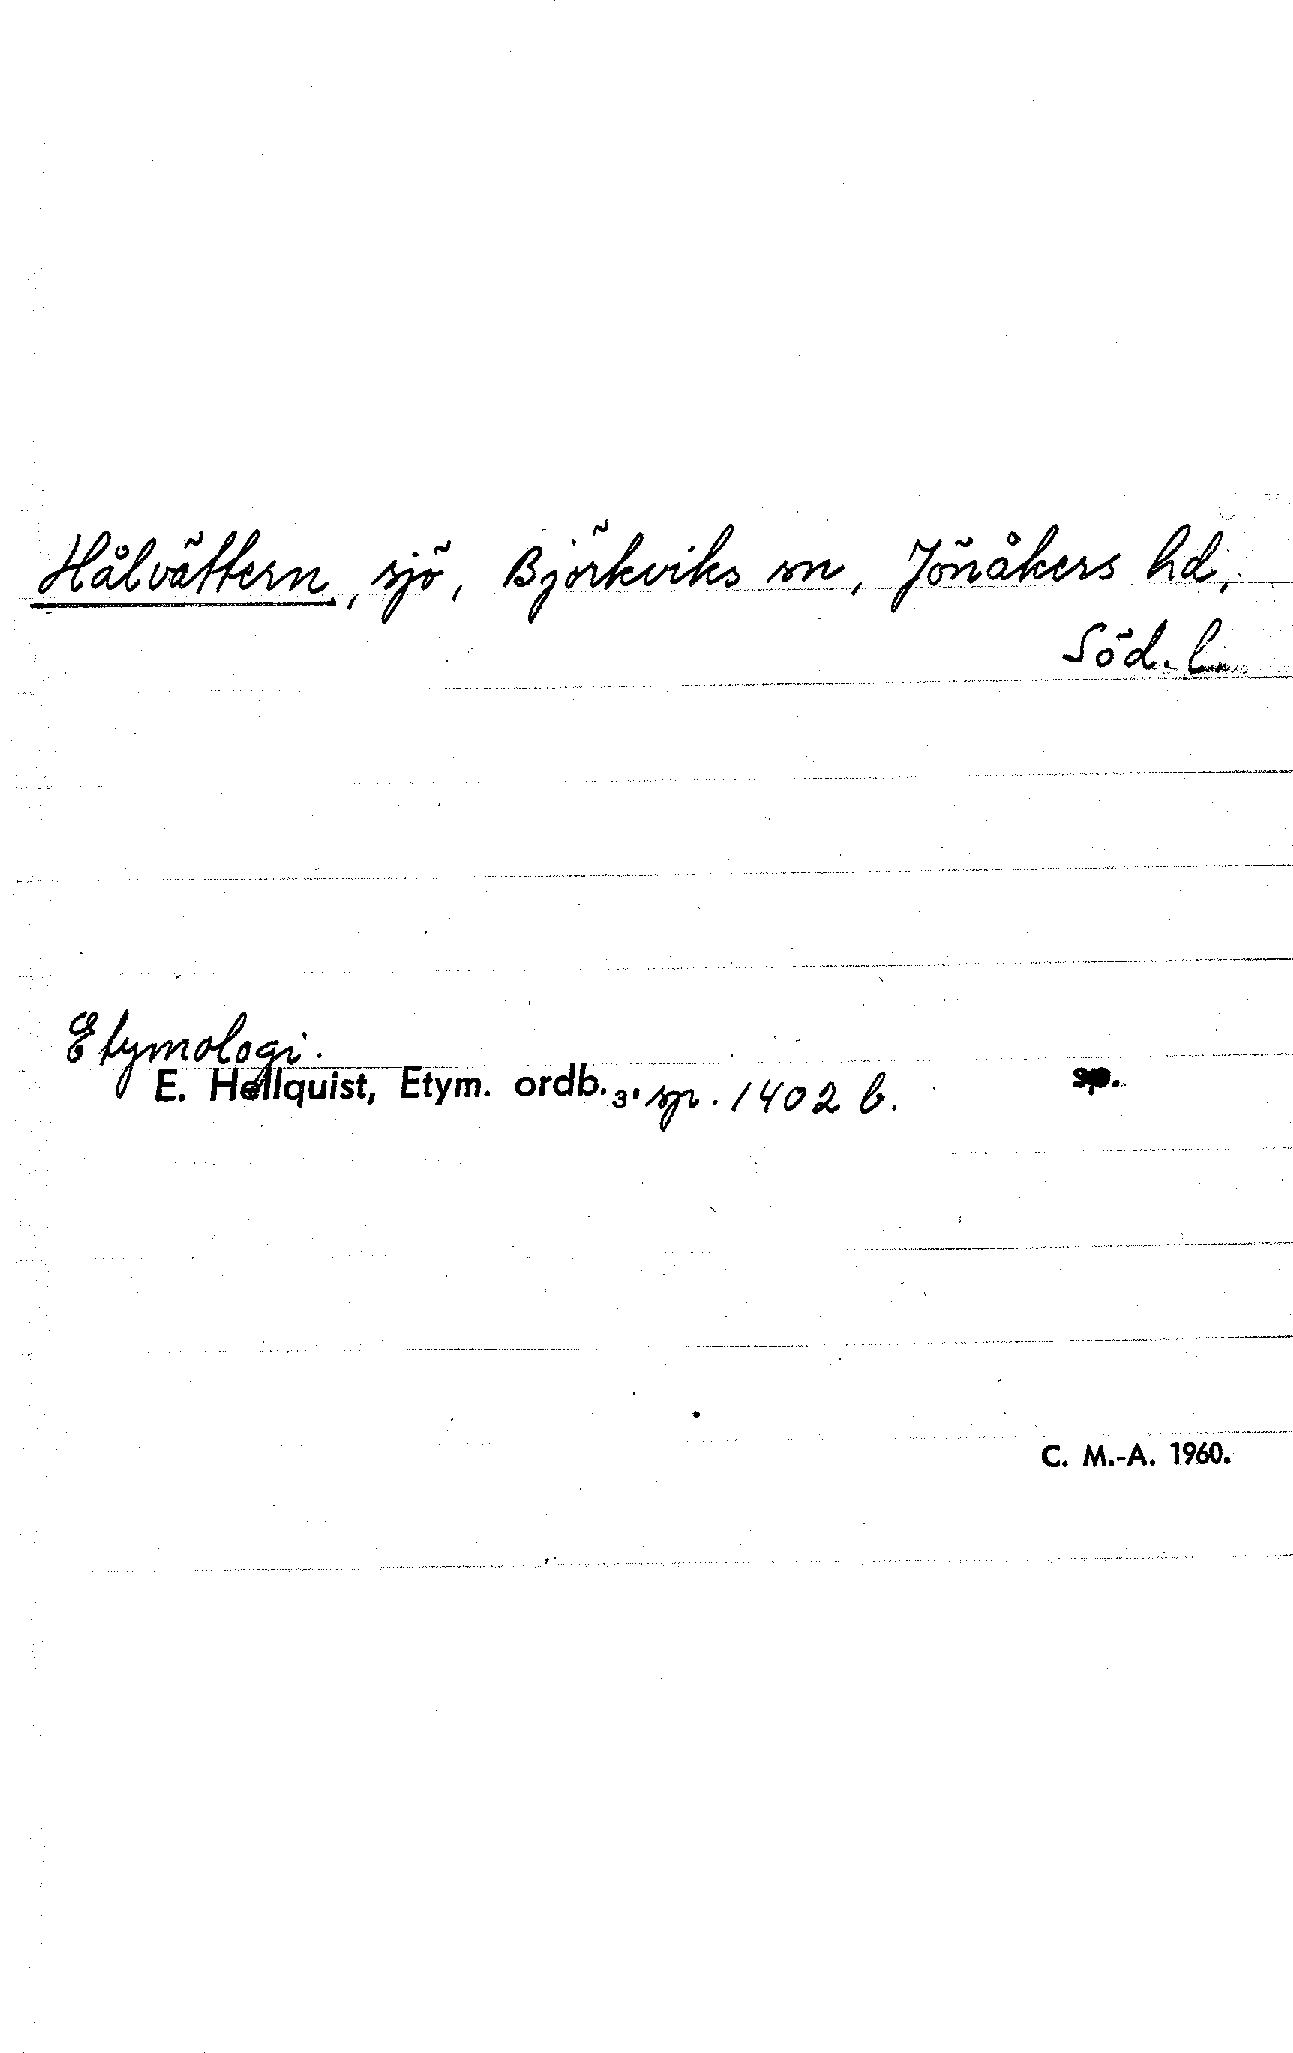 Hålvättern, sjö, Björkviks sn, Jönåkers hd,
Söd.l.
Etymologi.
E. Hellquist, Etym. ordb. 3. sp. 1402 b. sp.
C. M.-A. 1960.